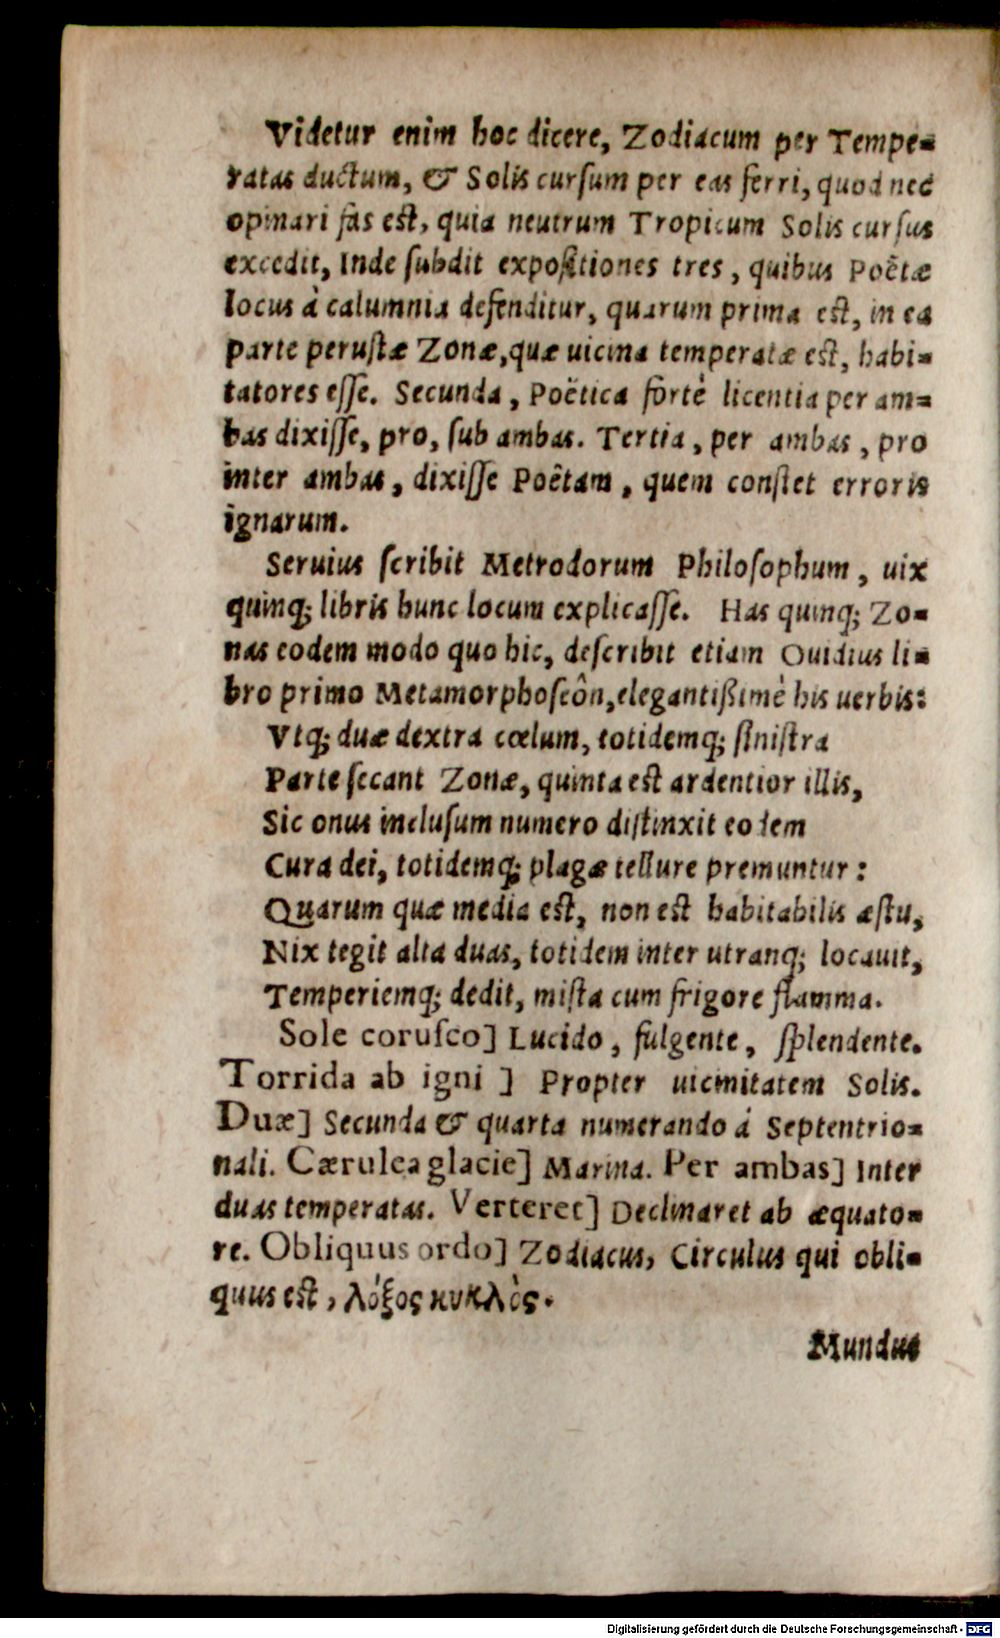 Videtur enim hoc dicere, Zodiacum per Tempe-
ratas ductum, & Solis cursum per eas ferri, quod nec
opinari fas est, quia neutrum Tropicum Solis cursus
excedit, Inde subdit expositiones tres, quibus Poëtæ
locus à calumnia defenditur, quarum prima est, in ea
parte perustæ Zonæ, quæ uicina temperatæ est, habi-
tatores esse. Secunda, Poëtica fortè licentia per am-
bas dixisse, pro, sub ambas. Tertia, per ambas, pro
inter ambas, dixisse Poëtam, quem constet erroris
ignarum.
Seruius scribit Metrodorum Philosophum, uix
quinq; libris hunc locum explicasse. Has quinq; Zo-
nas eodem modo quo hic, describit etiam Ouidius li-
bro primo Metamorphoseôn, elegantißimè his uerbis:
Vtq; duæ dextra cœlum, totidemq; sinistra
Parte secant Zonæ, quinta est ardentior illis,
Sic onus inclusum numero distinxit eodem
Cura dei, totidemq; plagæ tellure premuntur:
Quarum quæ media est, non est habitabilis æstu,
Nix tegit alta duas, totidem inter utranq; locauit,
Temperiemq; dedit, mista cum frigore flamma.
Sole corusco] Lucido, fulgente, splendente.
Torrida ab igni ] Propter uicinitatem Solis.
Duæ] Secunda & quarta numerando à Septentrio-
nali. Cærulea glacie] Marina. Per ambas] Inter
duas temperatas. Verteret] Declinaret ab æquato-
re. Obliquus ordo] Zodiacus, Circulus qui obli-
quus est, λόξος κυκλὸς.
Mundus
Digitalisierung gefördert durch die Deutsche Forschungsgemeinschaft - DFG